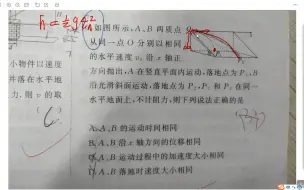 小物件以速度
并落在水平地
力，则 v 的取
如图所示，A、B 两质点
从同一点 O 分别以相同
的水平速度 v₀ 沿 x 轴正
方向抛出，A 在竖直平面内运动，落地点为 P₁，B
沿光滑斜面运动，落地点为 P₂，P₁ 和 P₂ 在同一
水平地面上，不计阻力，则下列说法正确的是
A. A、B 的运动时间相同
B. A、B 沿 x 轴方向的位移相同
C. A、B 运动过程中的加速度大小相同
D. A、B 落地时速度大小相同